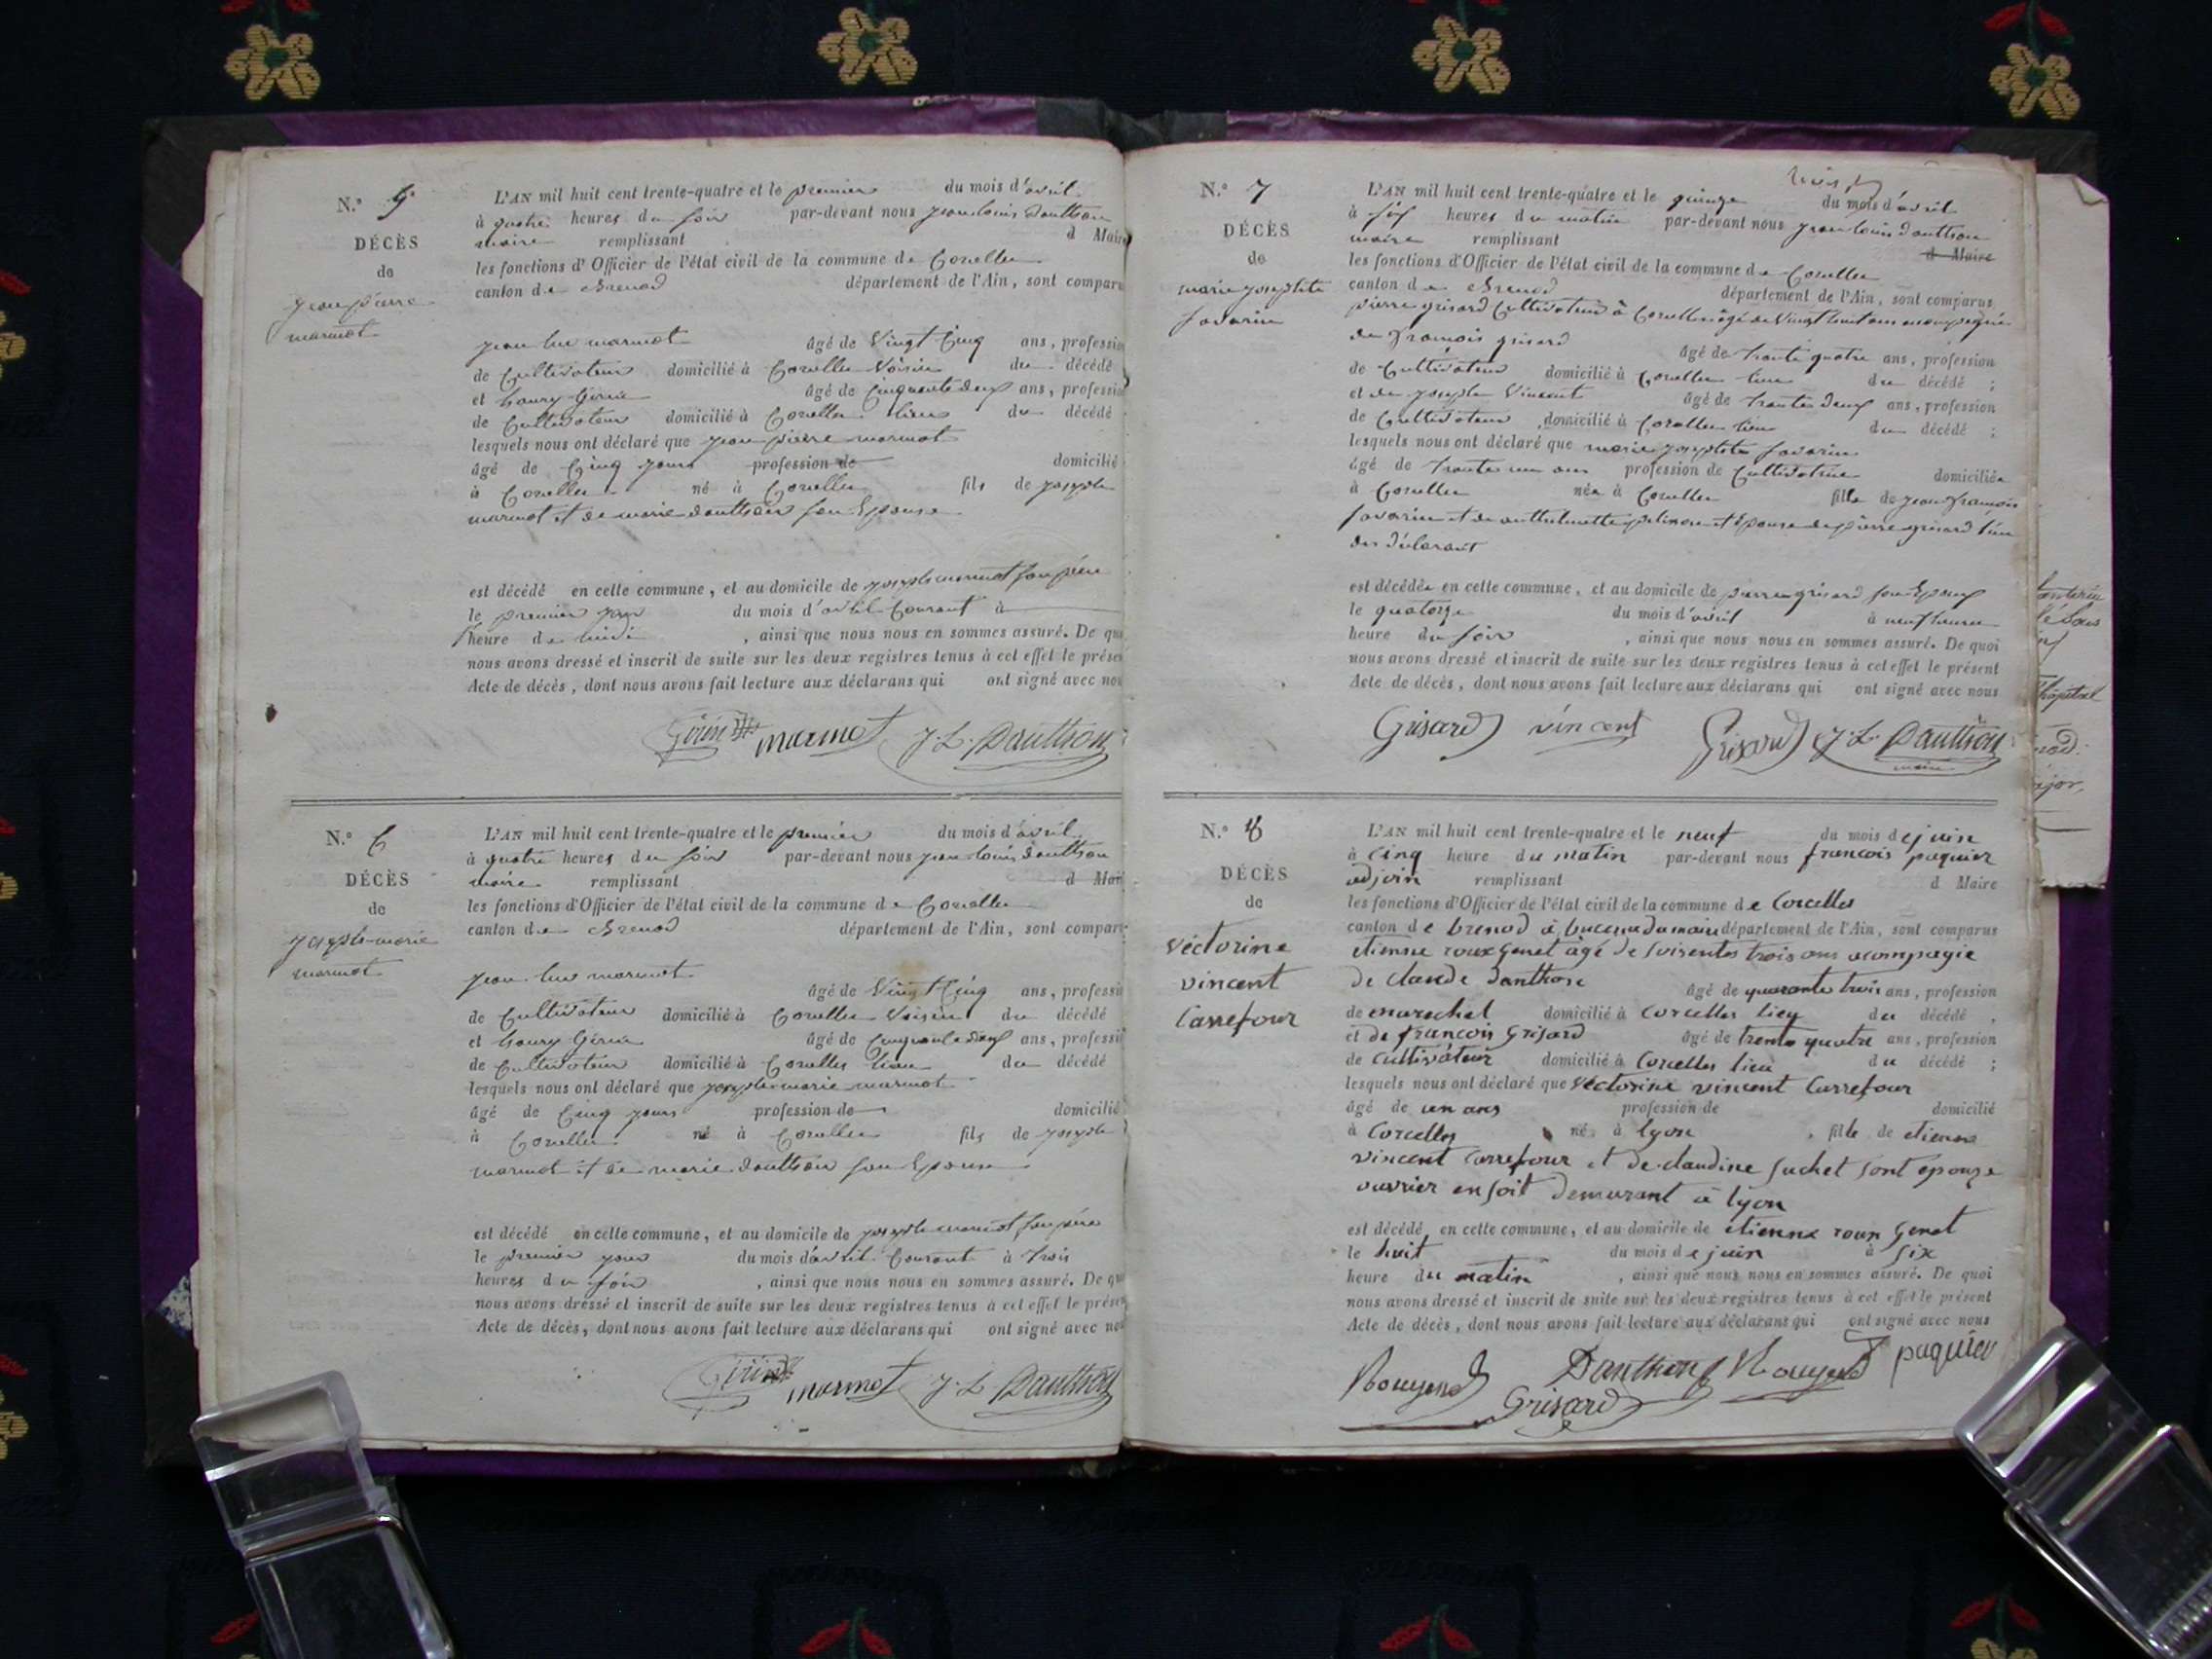 N.º 5
DÉCÈS
de
jean pierre
marmot
L'AN mil huit cent trente-quatre et le premier du mois d'avril
à quatre heures du soir par-devant nous jean louis danthon
maire remplissant d Maire
les fonctions d'Officier de l'état civil de la commune de Corcelles
canton de Brenod département de l'Ain, sont comparu
jean luc marmot âgé de Vingt Cinq ans, profession
de Cultivateur domicilié à Corcelles Voisin du décédé
et âgé de Cinquante deux ans, profession
de Cultivateur domicilié à Corcelles lieu du décédé
lesquels nous ont déclaré que jean pierre marmot
âgé de Cinq jours profession de domicilié
à Corcelles né à Corcelles fils de joseph
marmot et de marie danthon son Epouse
est décédé en cette commune, et au domicile de joseph marmot son père
le premier jour du mois d'avril Courant à
heure de midi , ainsi que nous nous en sommes assuré. De quoi
nous avons dressé et inscrit de suite sur les deux registres tenus à cet effet le présen
Acte de décès, dont nous avons fait lecture aux déclarans qui ont signé avec nou
marmot J. L. Danthon
N.º 6
DÉCÈS
de
joseph-marie
marmot
L'AN mil huit cent trente-quatre et le premier du mois d'avril
à quatre heures du soir par-devant nous jean louis danthon
maire remplissant d Mai
les fonctions d'Officier de l'état civil de la commune de Corcelles
canton de Brenod département de l'Ain, sont compar
jean luc marmot
âgé de Vingt Cinq ans, professi
de Cultivateur domicilié à Corcelles Voisin du décédé
et âgé de Cinquante deux ans, professi
de Cultivateur domicilié à Corcelles lieu du décédé
lesquels nous ont déclaré que joseph marie marmot
âgé de Cinq jours profession de domicilié
à Corcelles né à Corcelles fils de joseph
marmot et de marie danthon son Epouse
est décédé en cette commune, et au domicile de joseph marmot son père
le premier jour du mois d'avril Courant à trois
heures du soir , ainsi que nous nous en sommes assuré. De qu
nous avons dressé et inscrit de suite sur les deux registres tenus à cet effet le présen
Acte de décès, dont nous avons fait lecture aux déclarans qui ont signé avec nou
marmot J. L. Danthon
N.º 7
DÉCÈS
de
marie josephte
savarin
L'AN mil huit cent trente-quatre et le quinze du mois d'avril
à six heures du matin par-devant nous jean louis danthon
maire remplissant d Maire
les fonctions d'Officier de l'état civil de la commune de Corcelles
canton de Brenod département de l'Ain, sont comparus
pierre grisard Cultivateur à Corcelles âgé de Vingt huit ans accompagné
de françois grisard âgé de trente quatre ans, profession
de Cultivateur domicilié à Corcelles lieu du décédé ;
et de joseph Vincent âgé de trente deux ans, profession
de Cultivateur domicilié à Corcelles lieu du décédé ;
lesquels nous ont déclaré que marie josephte savarin
âgé de trente un ans profession de Cultivatrice domiciliée
à Corcelles née à Corcelles fille de jean françois
savarin et de et Epouse de pierre grisard l'un
des déclarant
est décédée en cette commune, et au domicile de pierre grisard son Epoux
le quatorze du mois d'avril à neuf heures
heure du soir , ainsi que nous nous en sommes assuré. De quoi
nous avons dressé et inscrit de suite sur les deux registres tenus à cet effet le présent
Acte de décès, dont nous avons fait lecture aux déclarans qui ont signé avec nous
Grisard vincent Grisard J. L. Danthon
maire
N.º 8
DÉCÈS
de
véctorine
vincent
Carrefour
L'AN mil huit cent trente-quatre et le neuf du mois de juin
à cinq heure du matin par-devant nous françois paquier
adjoin remplissant d Maire
les fonctions d'Officier de l'état civil de la commune de Corcelles
canton de brenod département de l'Ain, sont comparus
etienne roux genet âgé de soisente trois ans acompagie
de claude danthon âgé de quarante trois ans, profession
de marechel domicilié à corcelles liey du décédé ,
et de françois Grisard âgé de trente quatre ans, profession
de cultivateur domicilié à Corcelles lieu du décédé ;
lesquels nous ont déclaré que véctorine vincent Carrefour
âgé de un ans profession de domicilié
à Corcelles né à lyon , fille de etienne
vincent Carrefour et de claudine suchet sont epouze
ouvrier en soit demurant à lyon
est décédé en cette commune, et au domicile de etienne roux Genet
le huit du mois de juin à six
heure du matin , ainsi que nous nous en sommes assuré. De quoi
nous avons dressé et inscrit de suite sur les deux registres tenus à cet effet le présent
Acte de décès, dont nous avons fait lecture aux déclarans qui ont signé avec nous
Danthon paquier
Grisard